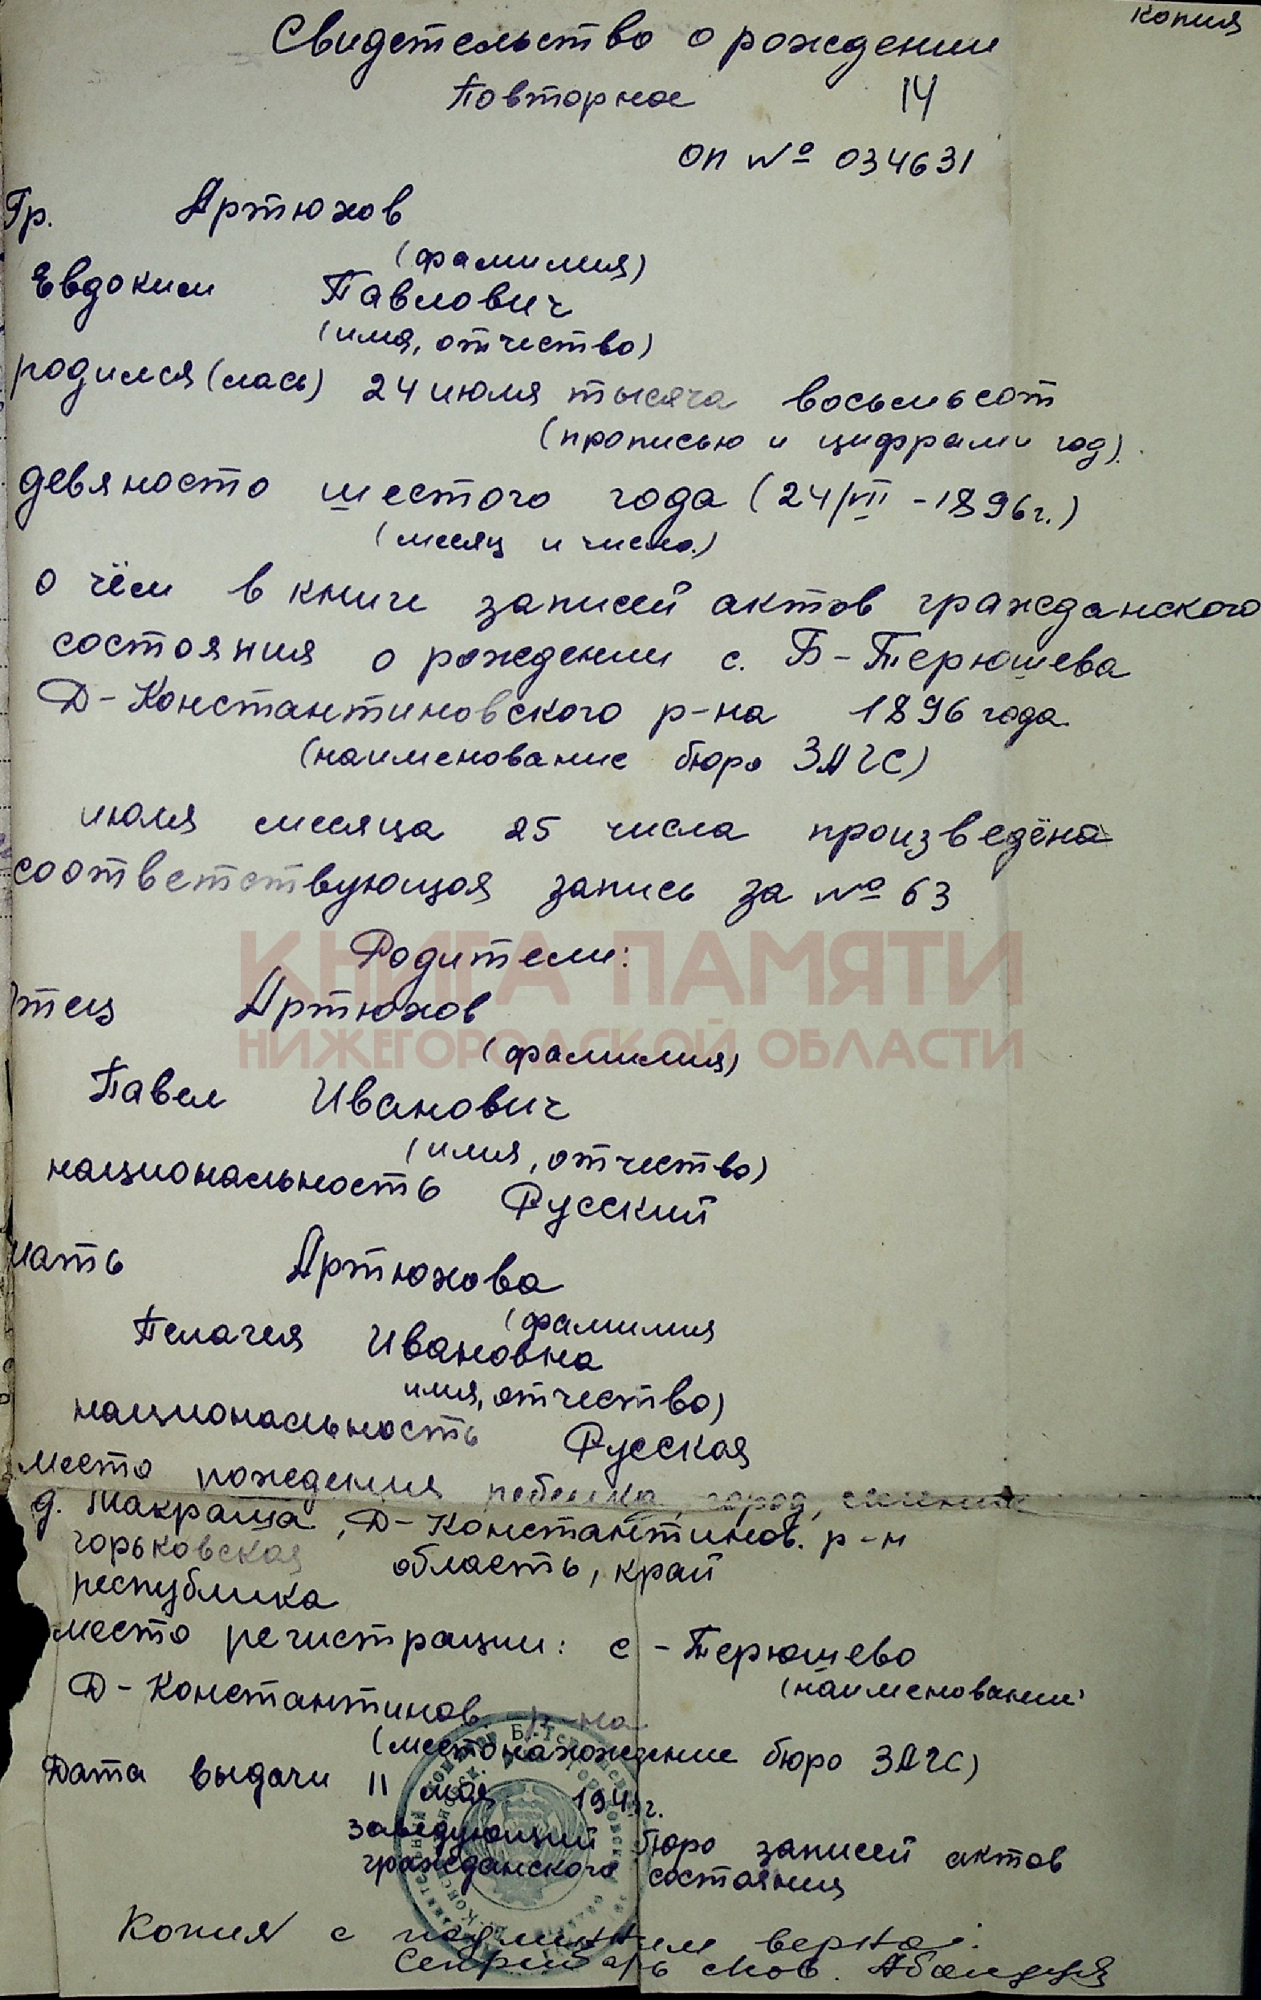 копия
Свидетельство о рождении
Повторное 14
ОП № 034631
Гр. Артюхов
(фамилия)
Евдоким Павлович
(имя, отчество)
родился(лась) 24 июля тысяча восемьсот
(прописью и цифрами год).
девяносто шестого года (24/VII - 1896г.)
(месяц и число.)
о чём в книге записей актов гражданского
состояния о рождении с. Б-Терюшева
Д-Константиновского р-на 1896 года
(наименование бюро ЗАГС)
июля месяца 25 числа произведена
соответствующая запись за № 63
Родители:
КНИГА ПАМЯТИ
НИЖЕГОРОДСКОЙ ОБЛАСТИ
отец Артюхов
(фамилия)
Павел Иванович
(имя, отчество)
национальность Русский
мать Артюхова
(фамилия
Пелагея Ивановна
имя, отчество)
национальность Русская
место рождения ребенка, город, селение
д. Макраша, Д-Константинов. р-н
горьковская область, край
республика
место регистрации: с-Терюшево
(наименование
Д-Константинов р-на
(местонахождение бюро ЗАГС)
Дата выдачи 11 мая
заведующий бюро записей актов
гражданского состояния
Копия с подлинным верна:
Секретарь